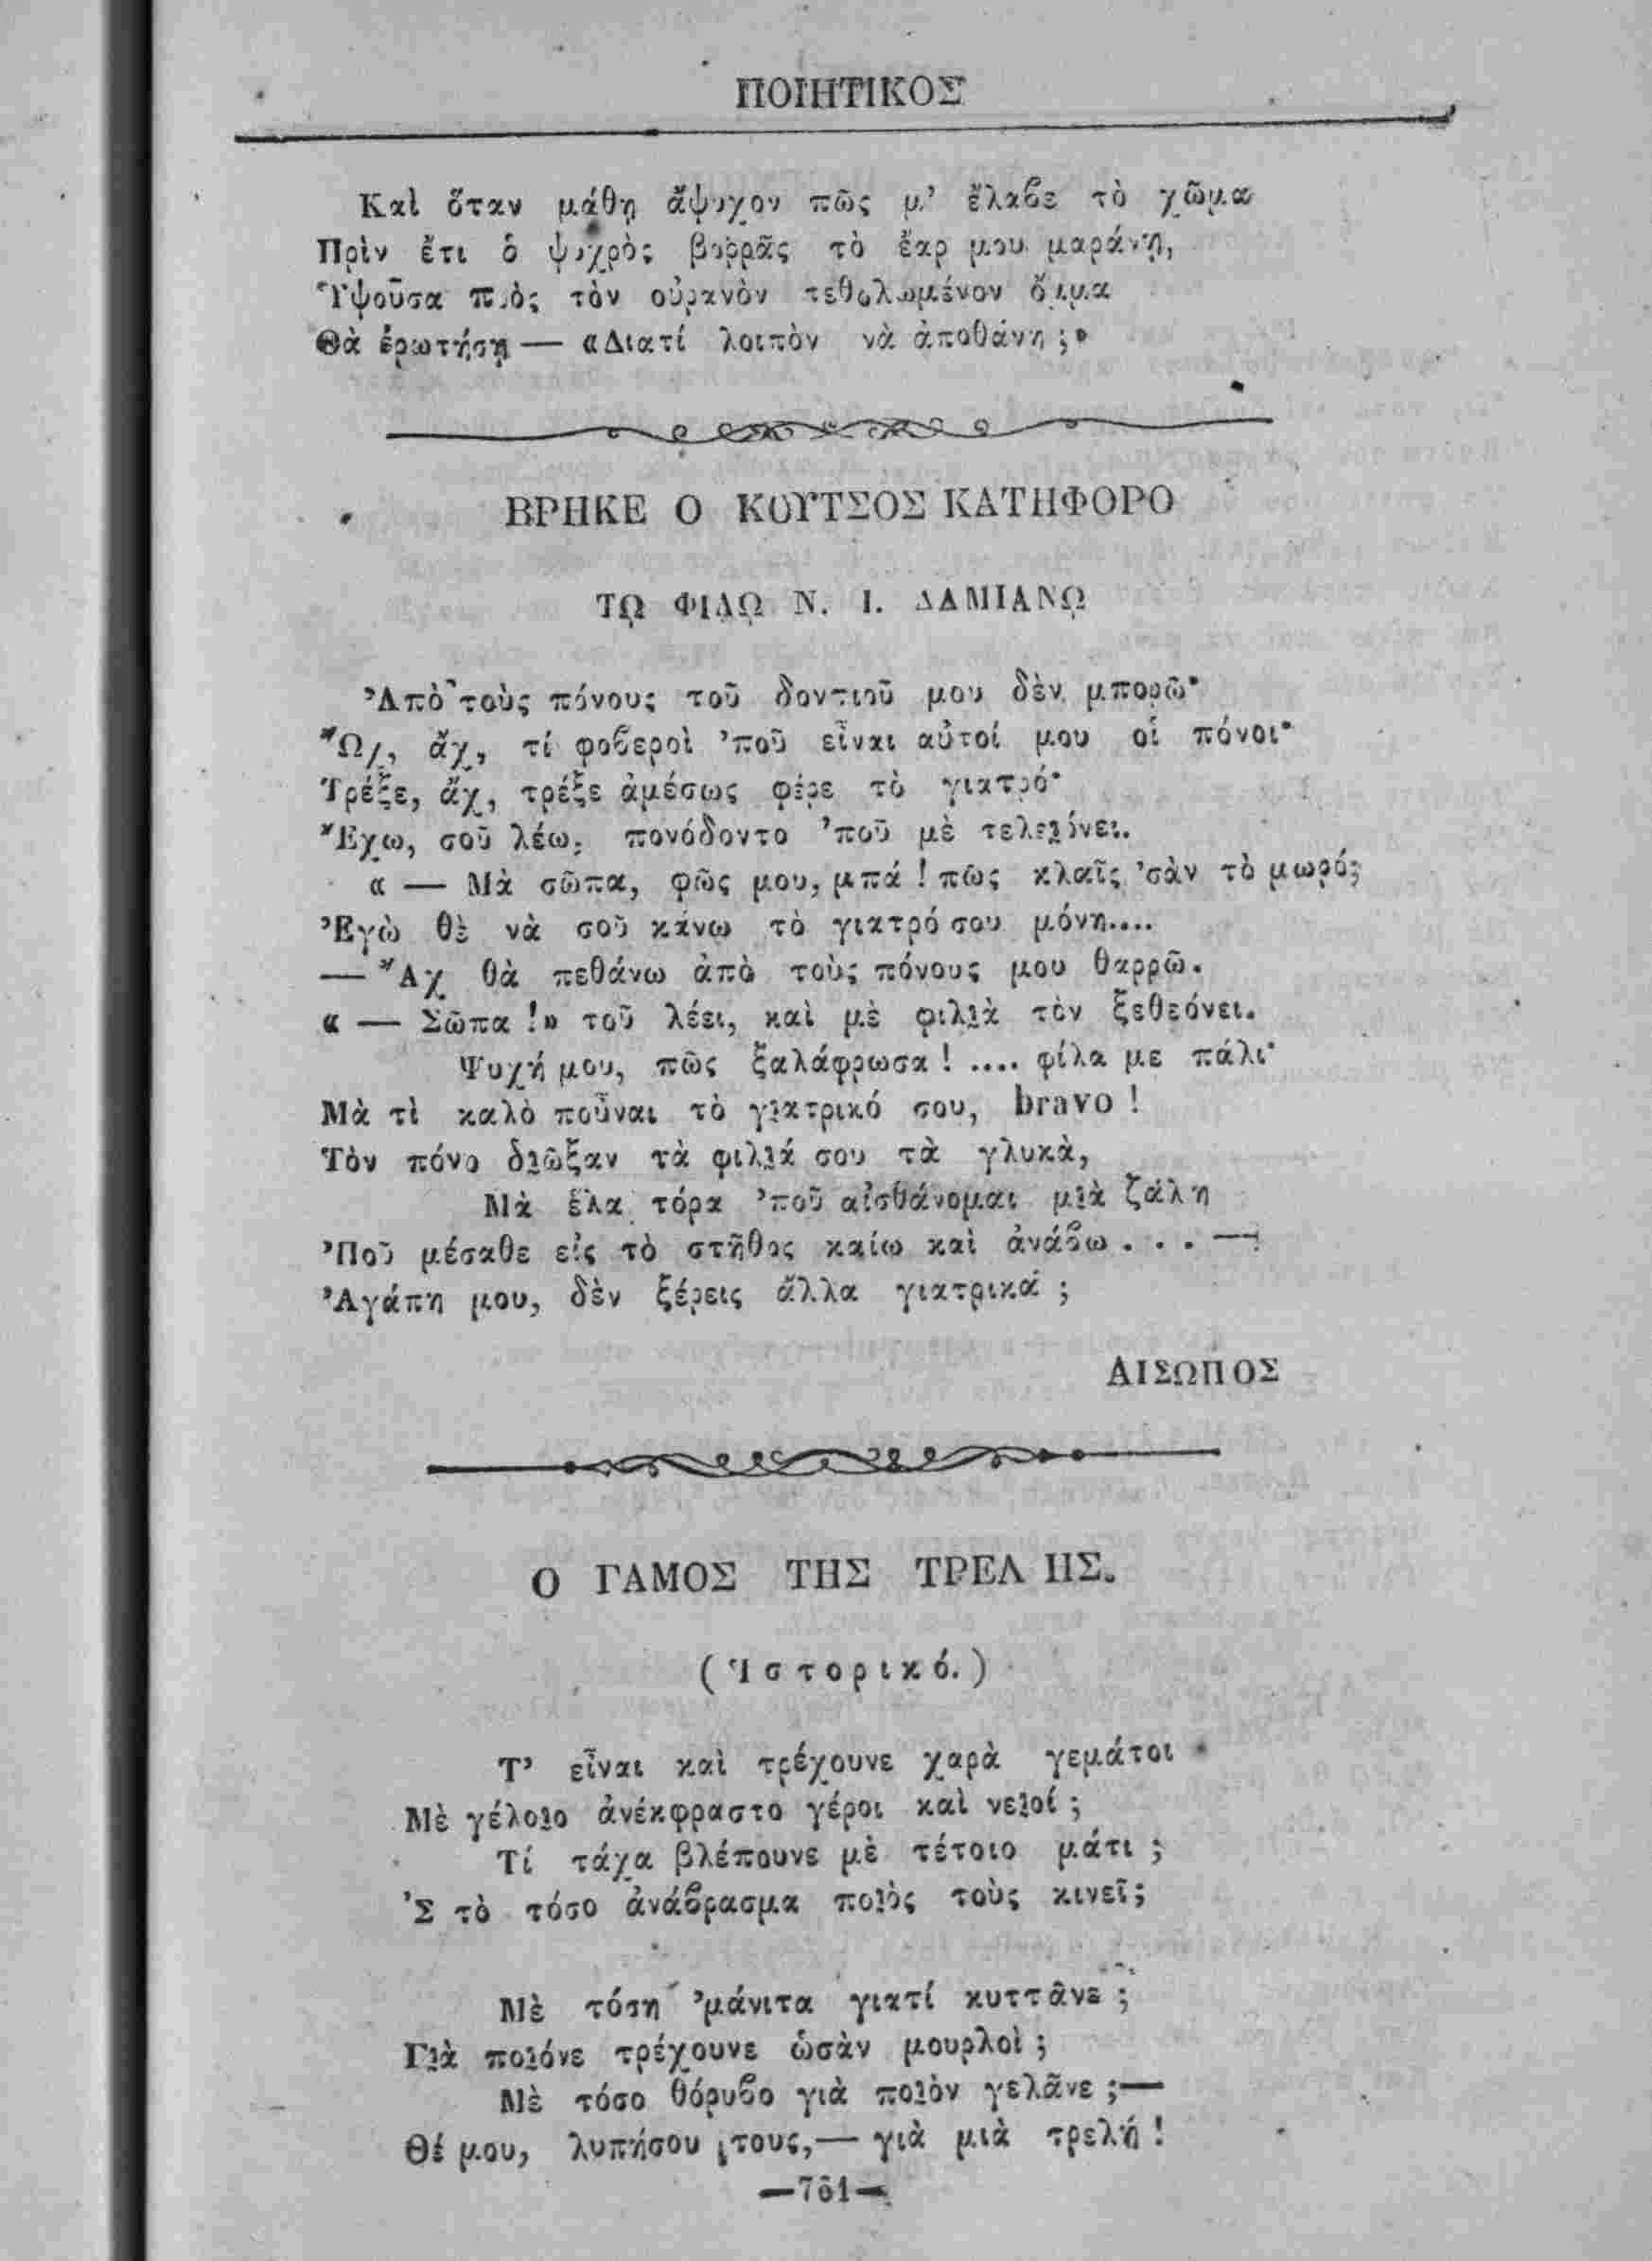 ΠΟΙΗΤΙΚΟΣ
Καὶ ὅταν μάθῃ ἄψυχον πῶς μ’ ἔλαβε τὸ χῶμα
Πρὶν ἔτι ὁ ψυχρὸς βοῤῥᾶς τὸ ἔαρ μου μαράνῃ,
Ὑψοῦσα πρὸς τὸν οὐρανὸν τεθολωμένον ὄμμα
Θὰ ἐρωτήσῃ — «Διατί λοιπὸν νὰ ἀποθάνῃ ;»
ΒΡΗΚΕ Ο ΚΟΥΤΣΟΣ ΚΑΤΗΦΟΡΟ
ΤΩ ΦΙΛΩ Ν. Ι. ΔΑΜΙΑΝΩ
Ἀπὸ τοὺς πόνους τοῦ δοντιοῦ μου δὲν μπορῶ·
Ὤχ, ἄχ, τί φοβεροὶ ’ποῦ εἶναι αὐτοί μου οἱ πόνοι·
Τρέξε, ἄχ, τρέξε ἀμέσως φέρε τὸ γιατρό·
Ἔχω, σοῦ λέω, πονόδοντο ’ποῦ μὲ τελειόνει.
« — Μὰ σῶπα, φῶς μου, μπά ! πῶς κλαῖς ’σὰν τὸ μωρό;
Ἐγὼ θὲ νὰ σοῦ κάνω τὸ γιατρό σου μόνη....
— Ἄχ θὰ πεθάνω ἀπὸ τοὺς πόνους μου θαρρῶ.
« — Σῶπα !» τοῦ λέει, καὶ μὲ φιλιὰ τὸν ξεθεόνει.
Ψυχή μου, πῶς ξαλάφρωσα ! .... φίλα με πάλι·
Μὰ τὶ καλὸ ποὖναι τὸ γιατρικό σου, bravo !
Τὸν πόνο διῶξαν τὰ φιλιά σου τὰ γλυκὰ,
Μὰ ἔλα τόρα ’ποῦ αἰσθάνομαι μιὰ ζάλη
Ποῦ μέσαθε εἰς τὸ στῆθος καίω καὶ ἀνάβω . . . —
Ἀγάπη μου, δὲν ξέρεις ἄλλα γιατρικά ;
ΑΙΣΩΠΟΣ
Ο ΓΑΜΟΣ ΤΗΣ ΤΡΕΛΗΣ.
(Ἱστορικό.)
Τ’ εἶναι καὶ τρέχουνε χαρὰ γεμάτοι
Μὲ γέλοιο ἀνέκφραστο γέροι καὶ νειοί ;
Τί τάχα βλέπουνε μὲ τέτοιο μάτι ;
’Σ τὸ τόσο ἀνάβρασμα ποιὸς τοὺς κινεῖ;
Μὲ τόση ’μάνιτα γιατί κυττᾶνε ;
Γιὰ ποιόνε τρέχουνε ὡσὰν μουρλοὶ ;
Μὲ τόσο θόρυβο γιὰ ποιὸν γελᾶνε ;—
Θέ μου, λυπήσου τους,— γιὰ μιὰ τρελή !